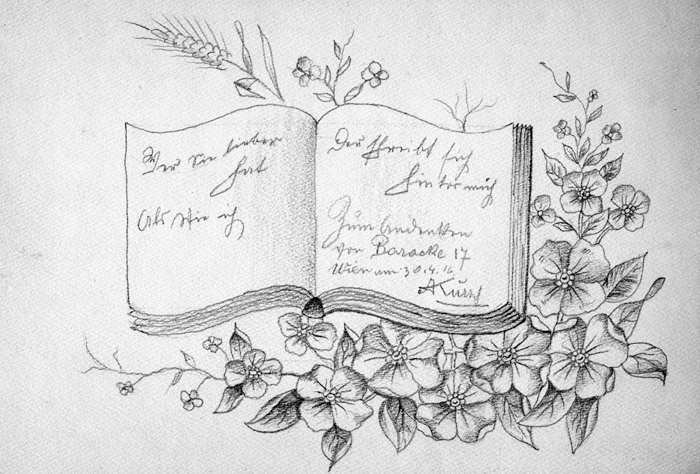 Wer Sie lieber
hat
Als wie ich
Der schreibt sich
hinter mich
Zum Andenken
von Baracke 17
Wien am 30.4.16
AKurz